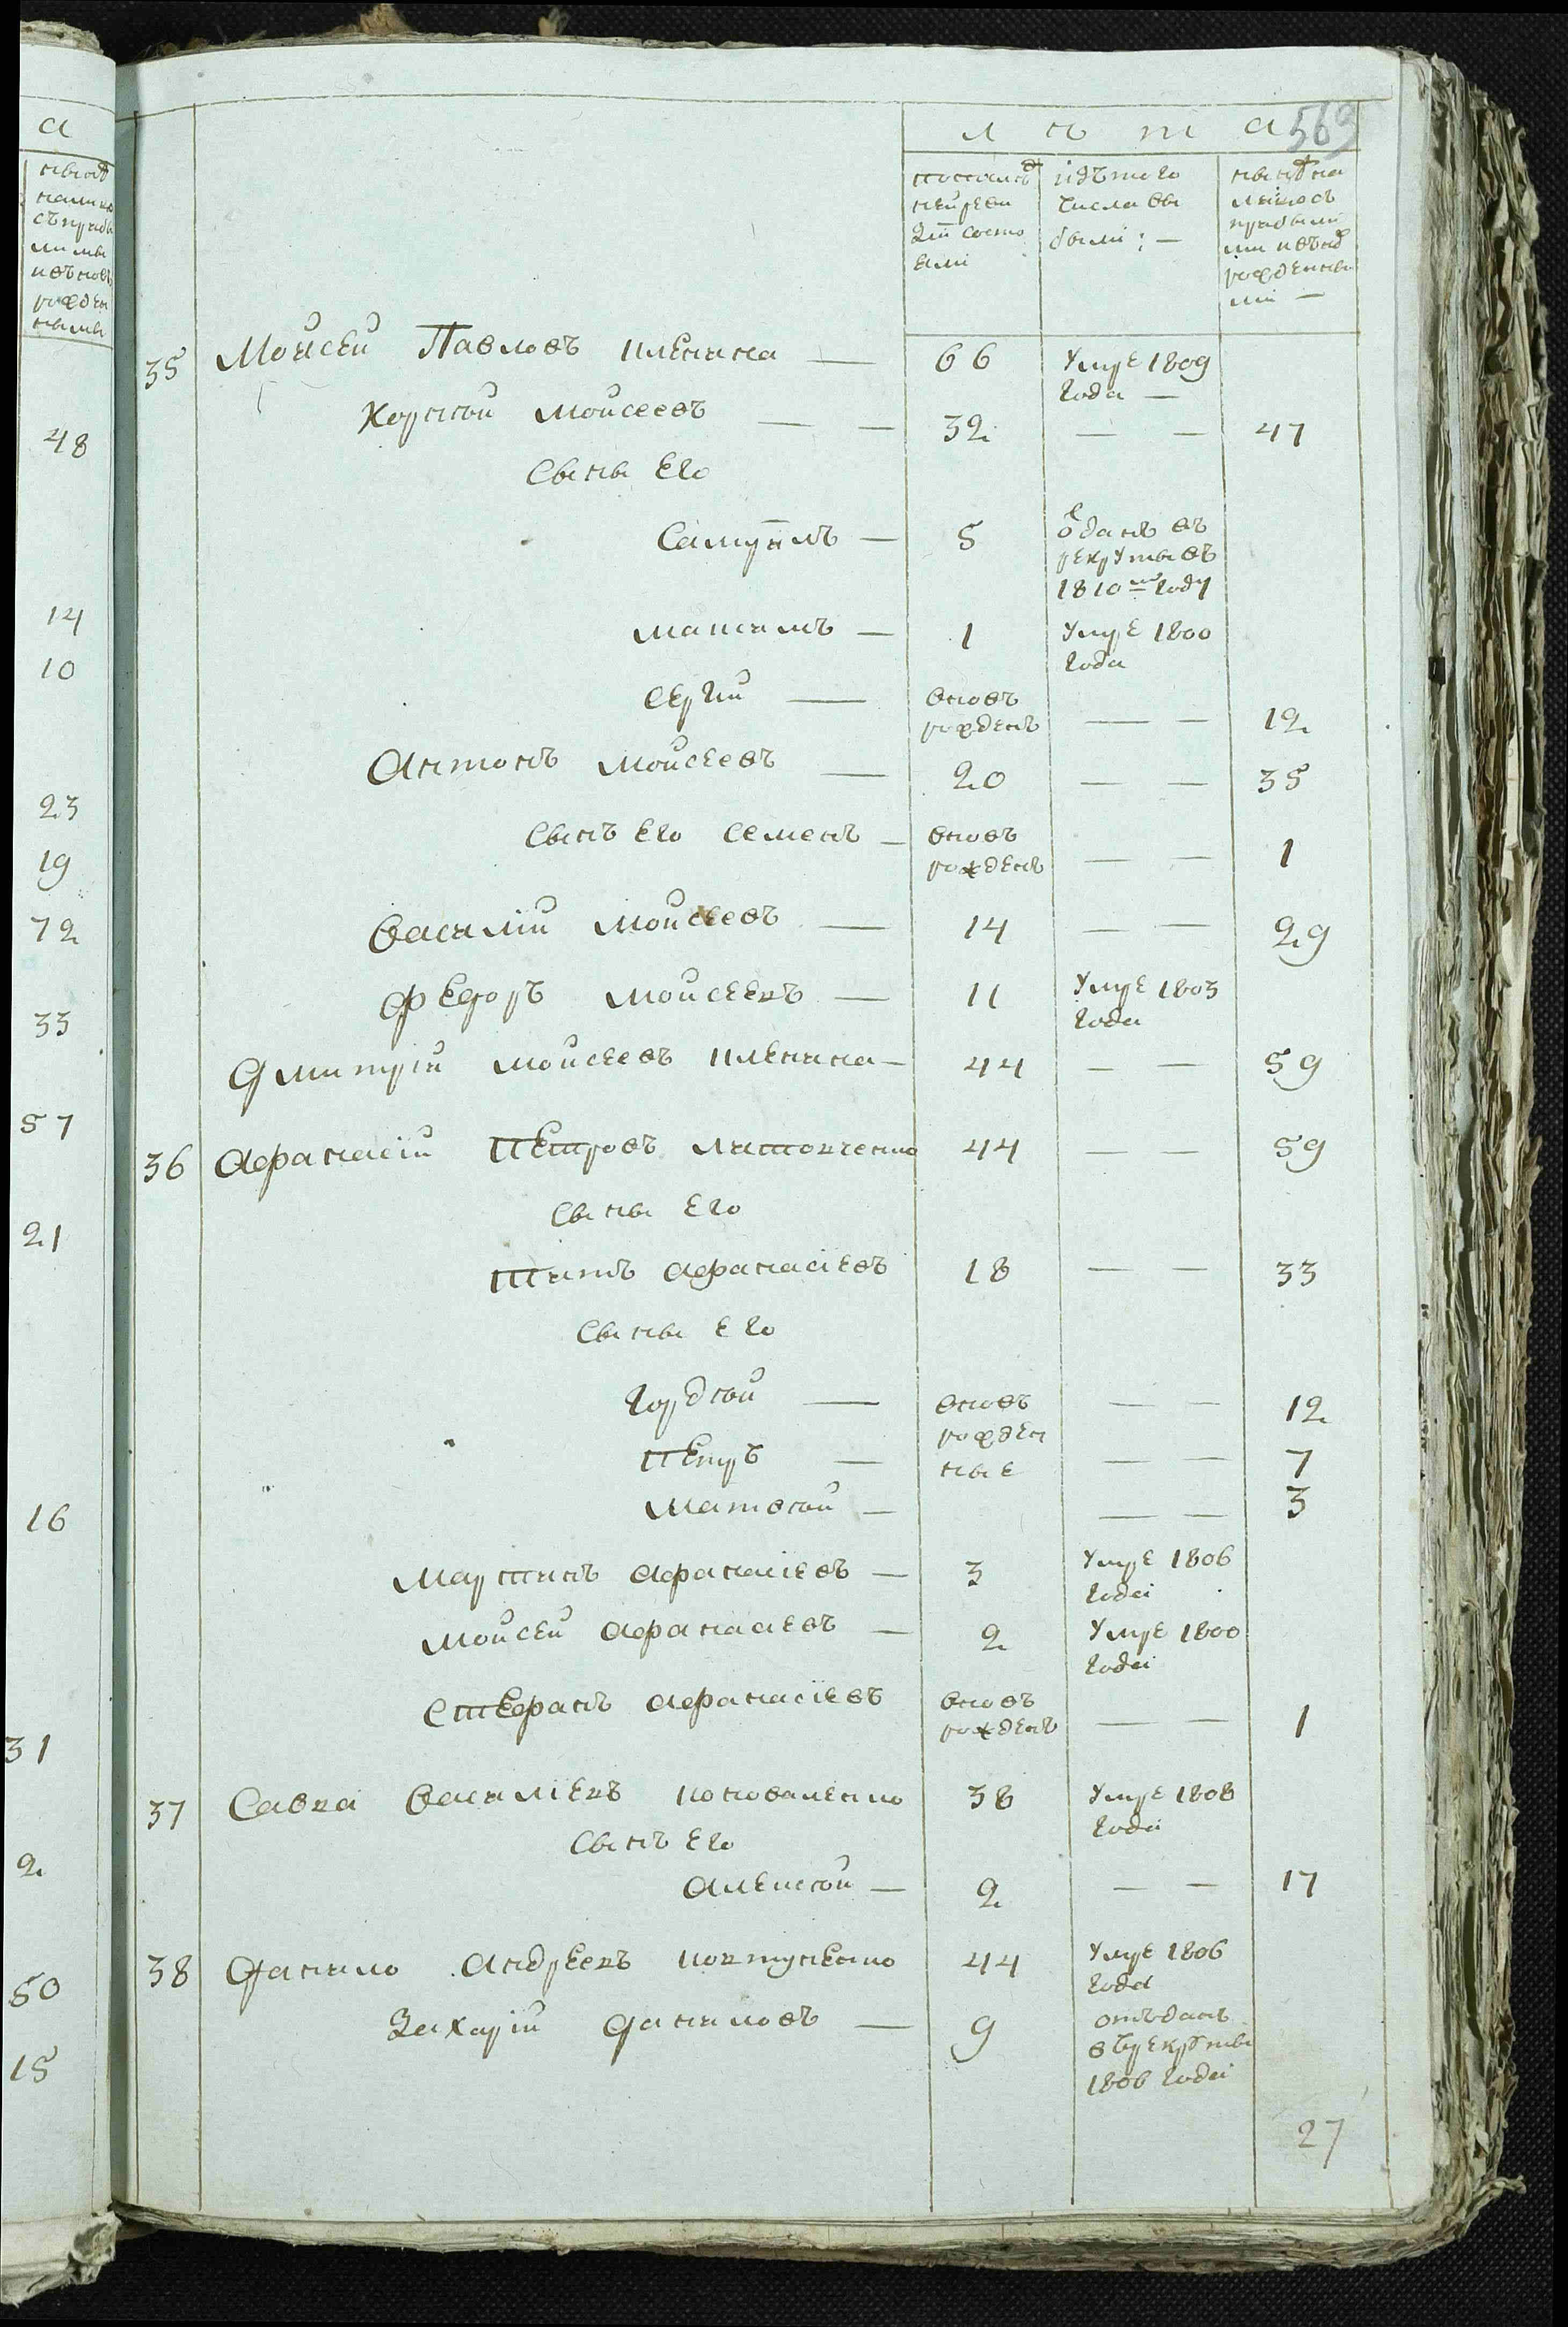 а
48
14
10
23
19
72
33
57
21
16
31
2
50
15
569
л ѣ т а
по послѣд
ней реви
зіи состо
яли
изъ того
числа вы
были: —
нынѣ на
лицо съ
прибылы
ми и вновь
рожденны
ми —
35 Мойсей Павловъ Клечина — 66 Умре 1809
года —
Корней Мойсеевъ — — 32 — — 47
Сыны Его
Самуилъ — 5 Отданъ въ
рекруты въ
1810 м году
Максимъ — 1 Умре 1800
года
Сергій — вновь
рожденъ — — 12
Антонъ Мойсеевъ — 20 — — 35
Сынъ Его Семенъ — вновь
рожденъ — — 1
Василій Мойсеевъ — 14 — — 29
Федоръ Мойсеевъ — 11 Умре 1803
года
Дмитрій Мойсеевъ Клечина — 44 — — 59
36 Афанасій Петровъ 44 — — 59
Сыны Его
Титъ Афанасіевъ 18 — — 33
Сыны Его
Гордей — вновь — — 12
рожден
Петръ — ные — — 7
Матвей — — — 3
Мартинъ Афанасіевъ — 3 Умре 1806
года
Мойсей Афанасіевъ — 2 Умре 1800
года
Стефанъ Афанасіевъ вновь
рожденъ — — 1
37 Савва Василіевъ Коноваленко 38 Умре 1808
года
Сынъ Его
Алексей — 2 — — 17
38 Данило Андреевъ Ковтуненко 44 Умре 1806
года
Захарій Даниловъ — 9 отъданъ
въ рекруты
1806 года
27